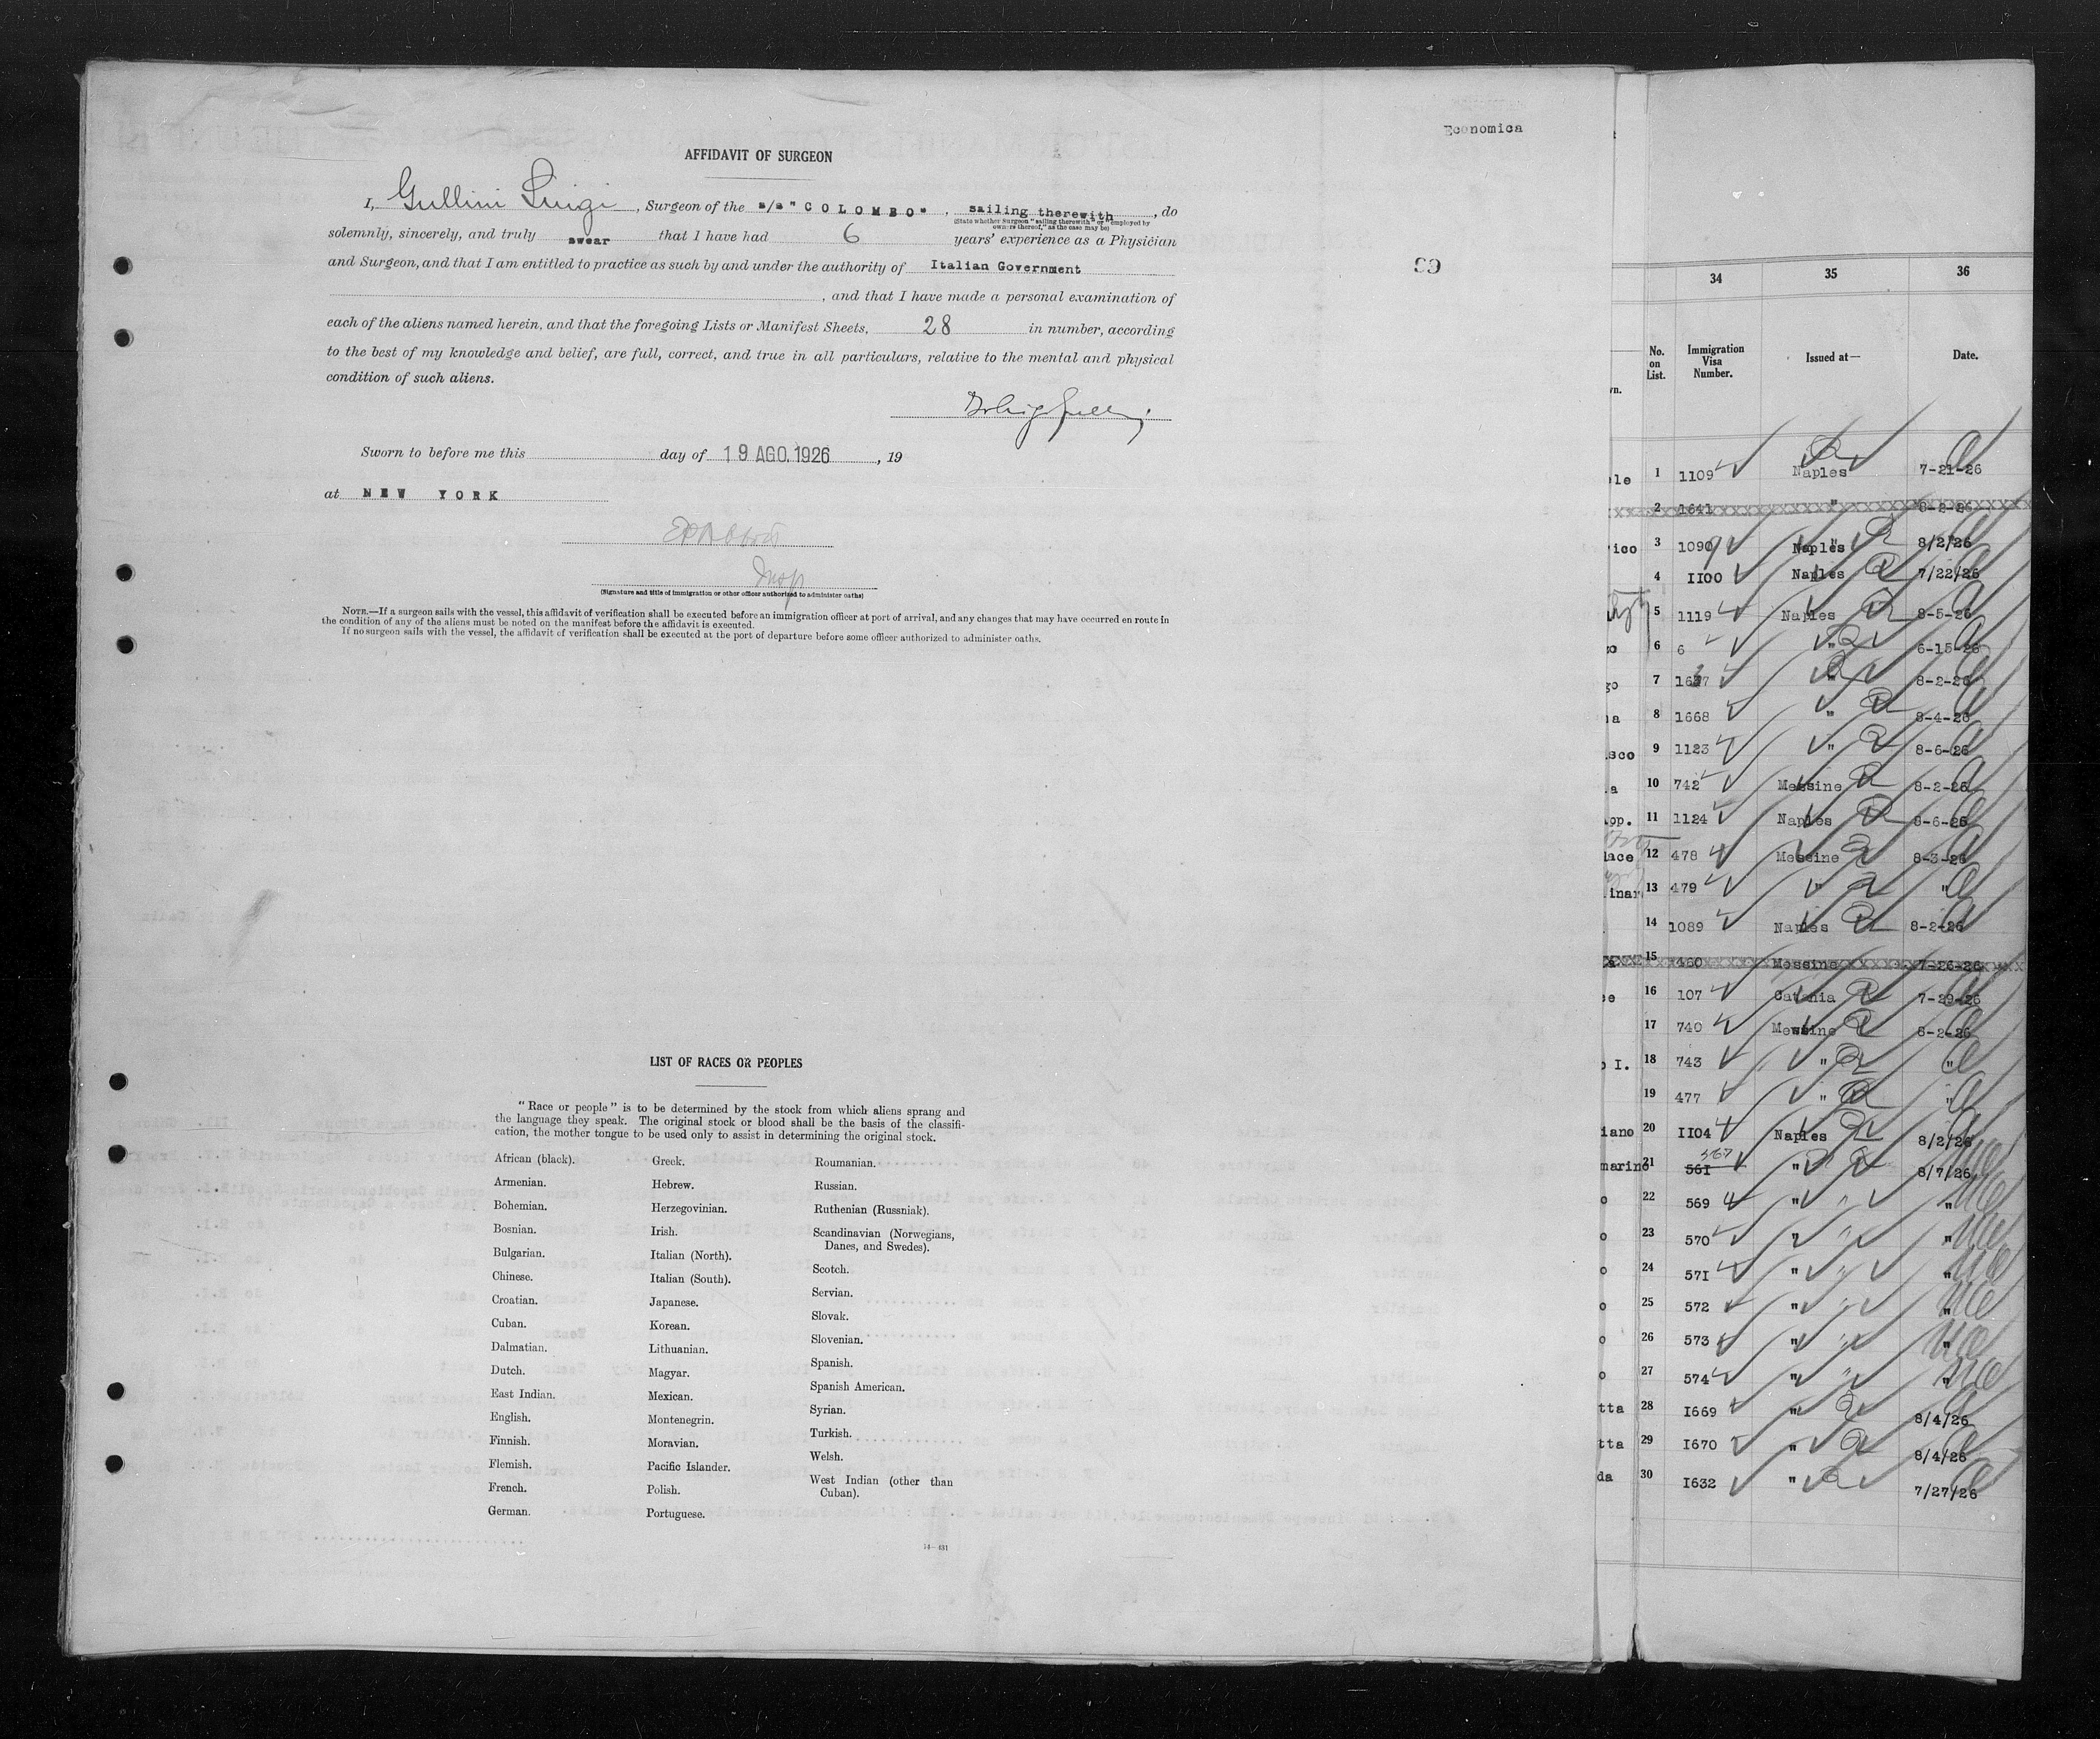 Economica
AFFIDAVIT OF SURGEON
I, Gullini Luigi, Surgeon of the s/s "COLOMBO", sailing therewith, do
(State whether Surgeon "sailing therewith" or "employed by
owners thereof," as the case may be)
solemnly, sincerely, and truly swear that I have had 6 years' experience as a Physician
and Surgeon, and that I am entitled to practice as such by and under the authority of Italian Government
, and that I have made a personal examination of
each of the aliens named herein, and that the foregoing Lists or Manifest Sheets, 28 in number, according
to the best of my knowledge and belief, are full, correct, and true in all particulars, relative to the mental and physical
condition of such aliens.
Sworn to before me this day of 19 AGO. 1926, 19
at NEW YORK
(Signature and title of immigration or other officer authorized to administer oaths)
NOTE.—If a surgeon sails with the vessel, this affidavit of verification shall be executed before an immigration officer at port of arrival, and any changes that may have occurred en route in
the condition of any of the aliens must be noted on the manifest before the affidavit is executed.
If no surgeon sails with the vessel, the affidavit of verification shall be executed at the port of departure before some officer authorized to administer oaths.
LIST OF RACES OR PEOPLES
"Race or people" is to be determined by the stock from which aliens sprang and
the language they speak. The original stock or blood shall be the basis of the classifi-
cation, the mother tongue to be used only to assist in determining the original stock.
African (black).
Armenian.
Bohemian.
Bosnian.
Bulgarian.
Chinese.
Croatian.
Cuban.
Dalmatian.
Dutch.
East Indian.
English.
Finnish.
Flemish.
French.
German.
Greek.
Hebrew.
Herzegovinian.
Irish.
Italian (North).
Italian (South).
Japanese.
Korean.
Lithuanian.
Magyar.
Mexican.
Montenegrin.
Moravian.
Pacific Islander.
Polish.
Portuguese.
Roumanian.
Russian.
Ruthenian (Russniak).
Scandinavian (Norwegians,
Danes, and Swedes).
Scotch.
Servian.
Slovak.
Slovenian.
Spanish.
Spanish American.
Syrian.
Turkish.
Welsh.
West Indian (other than
Cuban).
34 35 36
No. on List. Immigration Visa Number. Issued at— Date.
1 1109 Naples 7-21-26
2 1641 " 8-2-26
ico 3 1090 Naples " 8/2/26
4 1100 Naples 7/22/26
5 1119 Naples 8-5-26
6 6 " 6-15-26
go 7 1637 " 8-2-26
a 8 1668 " 8-4-26
sco 9 1123 " 8-6-26
a 10 742 Messine 8-2-26
pp. 11 1124 Naples 8-6-26
lace 12 478 Messine 8-3-26
inar 13 479 " "
14 1089 Naples 8-2-26
15 460 Messine 7-26-26
16 107 Catania 7-29-26
17 740 Messine 8-2-26
I. 18 743 " "
19 477 " "
iano 20 1104 Naples 8/2/26
marino 21 561 567 " 8/7/26
o 22 569 " " "
o 23 570 " " "
o 24 571 " " "
o 25 572 " " "
o 26 573 " " "
o 27 574 " " "
tta 28 1669 " 8/4/26
tta 29 1670 " 8/4/26
da 30 1632 " 7/27/26